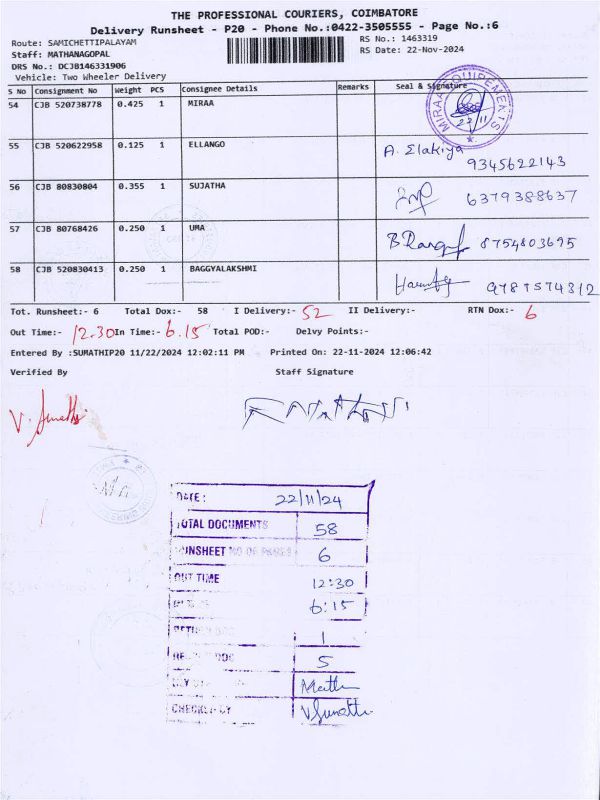 THE PROFESSIONAL COURIERS, COIMBATORE
Delivery Runsheet - P20 - Phone No.:0422-3505555 - Page No.:6
Route: SAMICHETTIPALAYAM RS No.: 1463319
Staff: MATHANAGOPAL RS Date: 22-Nov-2024
DRS No.: DCJB146331906
Vehicle: Two Wheeler Delivery
S No Consignment No Weight PCS Consignee Details Remarks Seal & Signature
54 CJB 520738778 0.425 1 MIRAA
MIRAA EQUIPEMENTS
22/11
55 CJB 520622958 0.125 1 ELLANGO A. Elakiya 9345622143
56 CJB 80830804 0.355 1 SUJATHA 6379388637
57 CJB 80768426 0.250 1 UMA 8754803695
58 CJB 520830413 0.250 1 BAGGYALAKSHMI
Tot. Runsheet:- 6 Total Dox:- 58 I Delivery:- 52 II Delivery:- RTN Dox:- 6
Out Time:- 12.30 In Time:- 6.15 Total POD:- Delvy Points:-
Entered By :SUMATHIP20 11/22/2024 12:02:11 PM Printed On: 22-11-2024 12:06:42
Verified By Staff Signature
DATE: 22/11/24
TOTAL DOCUMENTS 58
RUNSHEET NO OF PAGES 6
OUT TIME 12:30
6:15
1
5
CHECKED BY